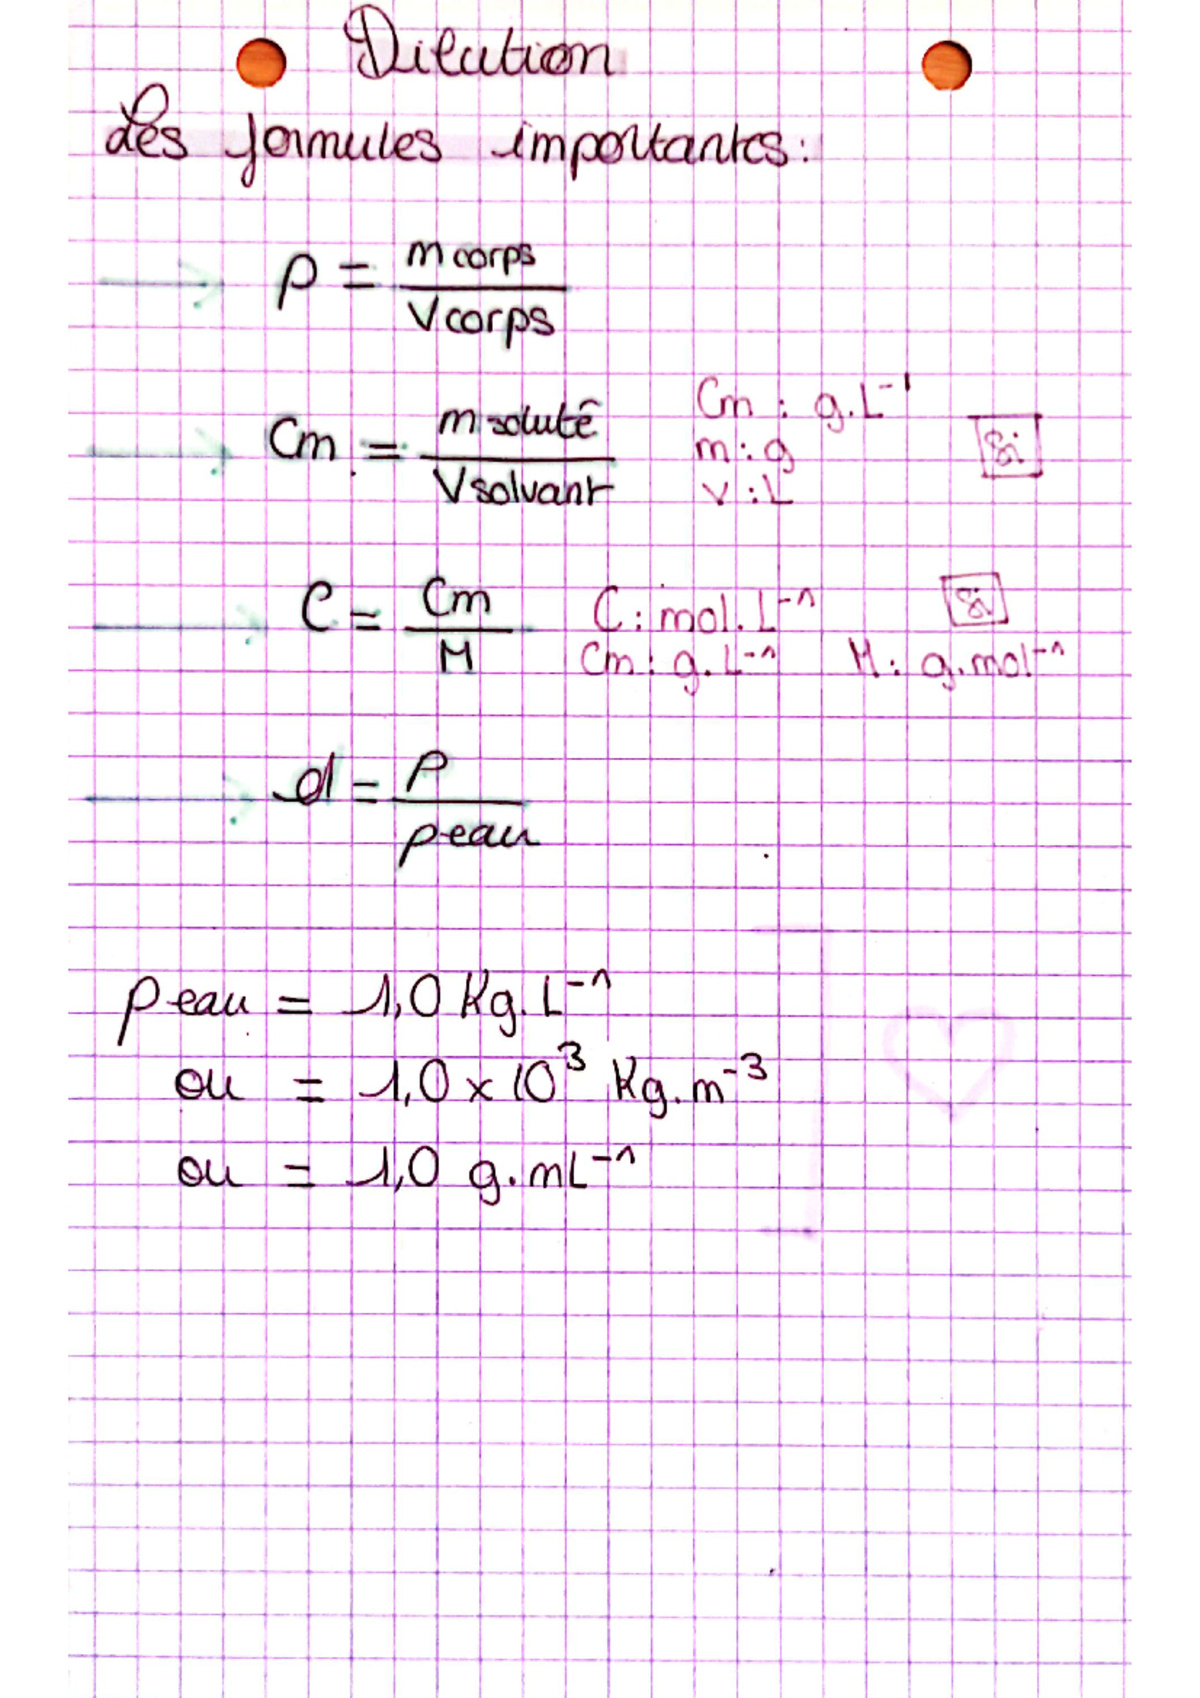 Dilution
Les formules importantes:
ρ = m corps / V corps
Cm = m soluté / V solvant
Cm : g.L⁻¹
m : g
V : L
Si
C = Cm / M
C : mol.L⁻¹
Si
Cm : g.L⁻¹ M : g.mol⁻¹
d = ρ / ρeau
ρeau = 1,0 Kg.L⁻¹
ou = 1,0 x 10³ Kg.m⁻³
ou = 1,0 g.mL⁻¹